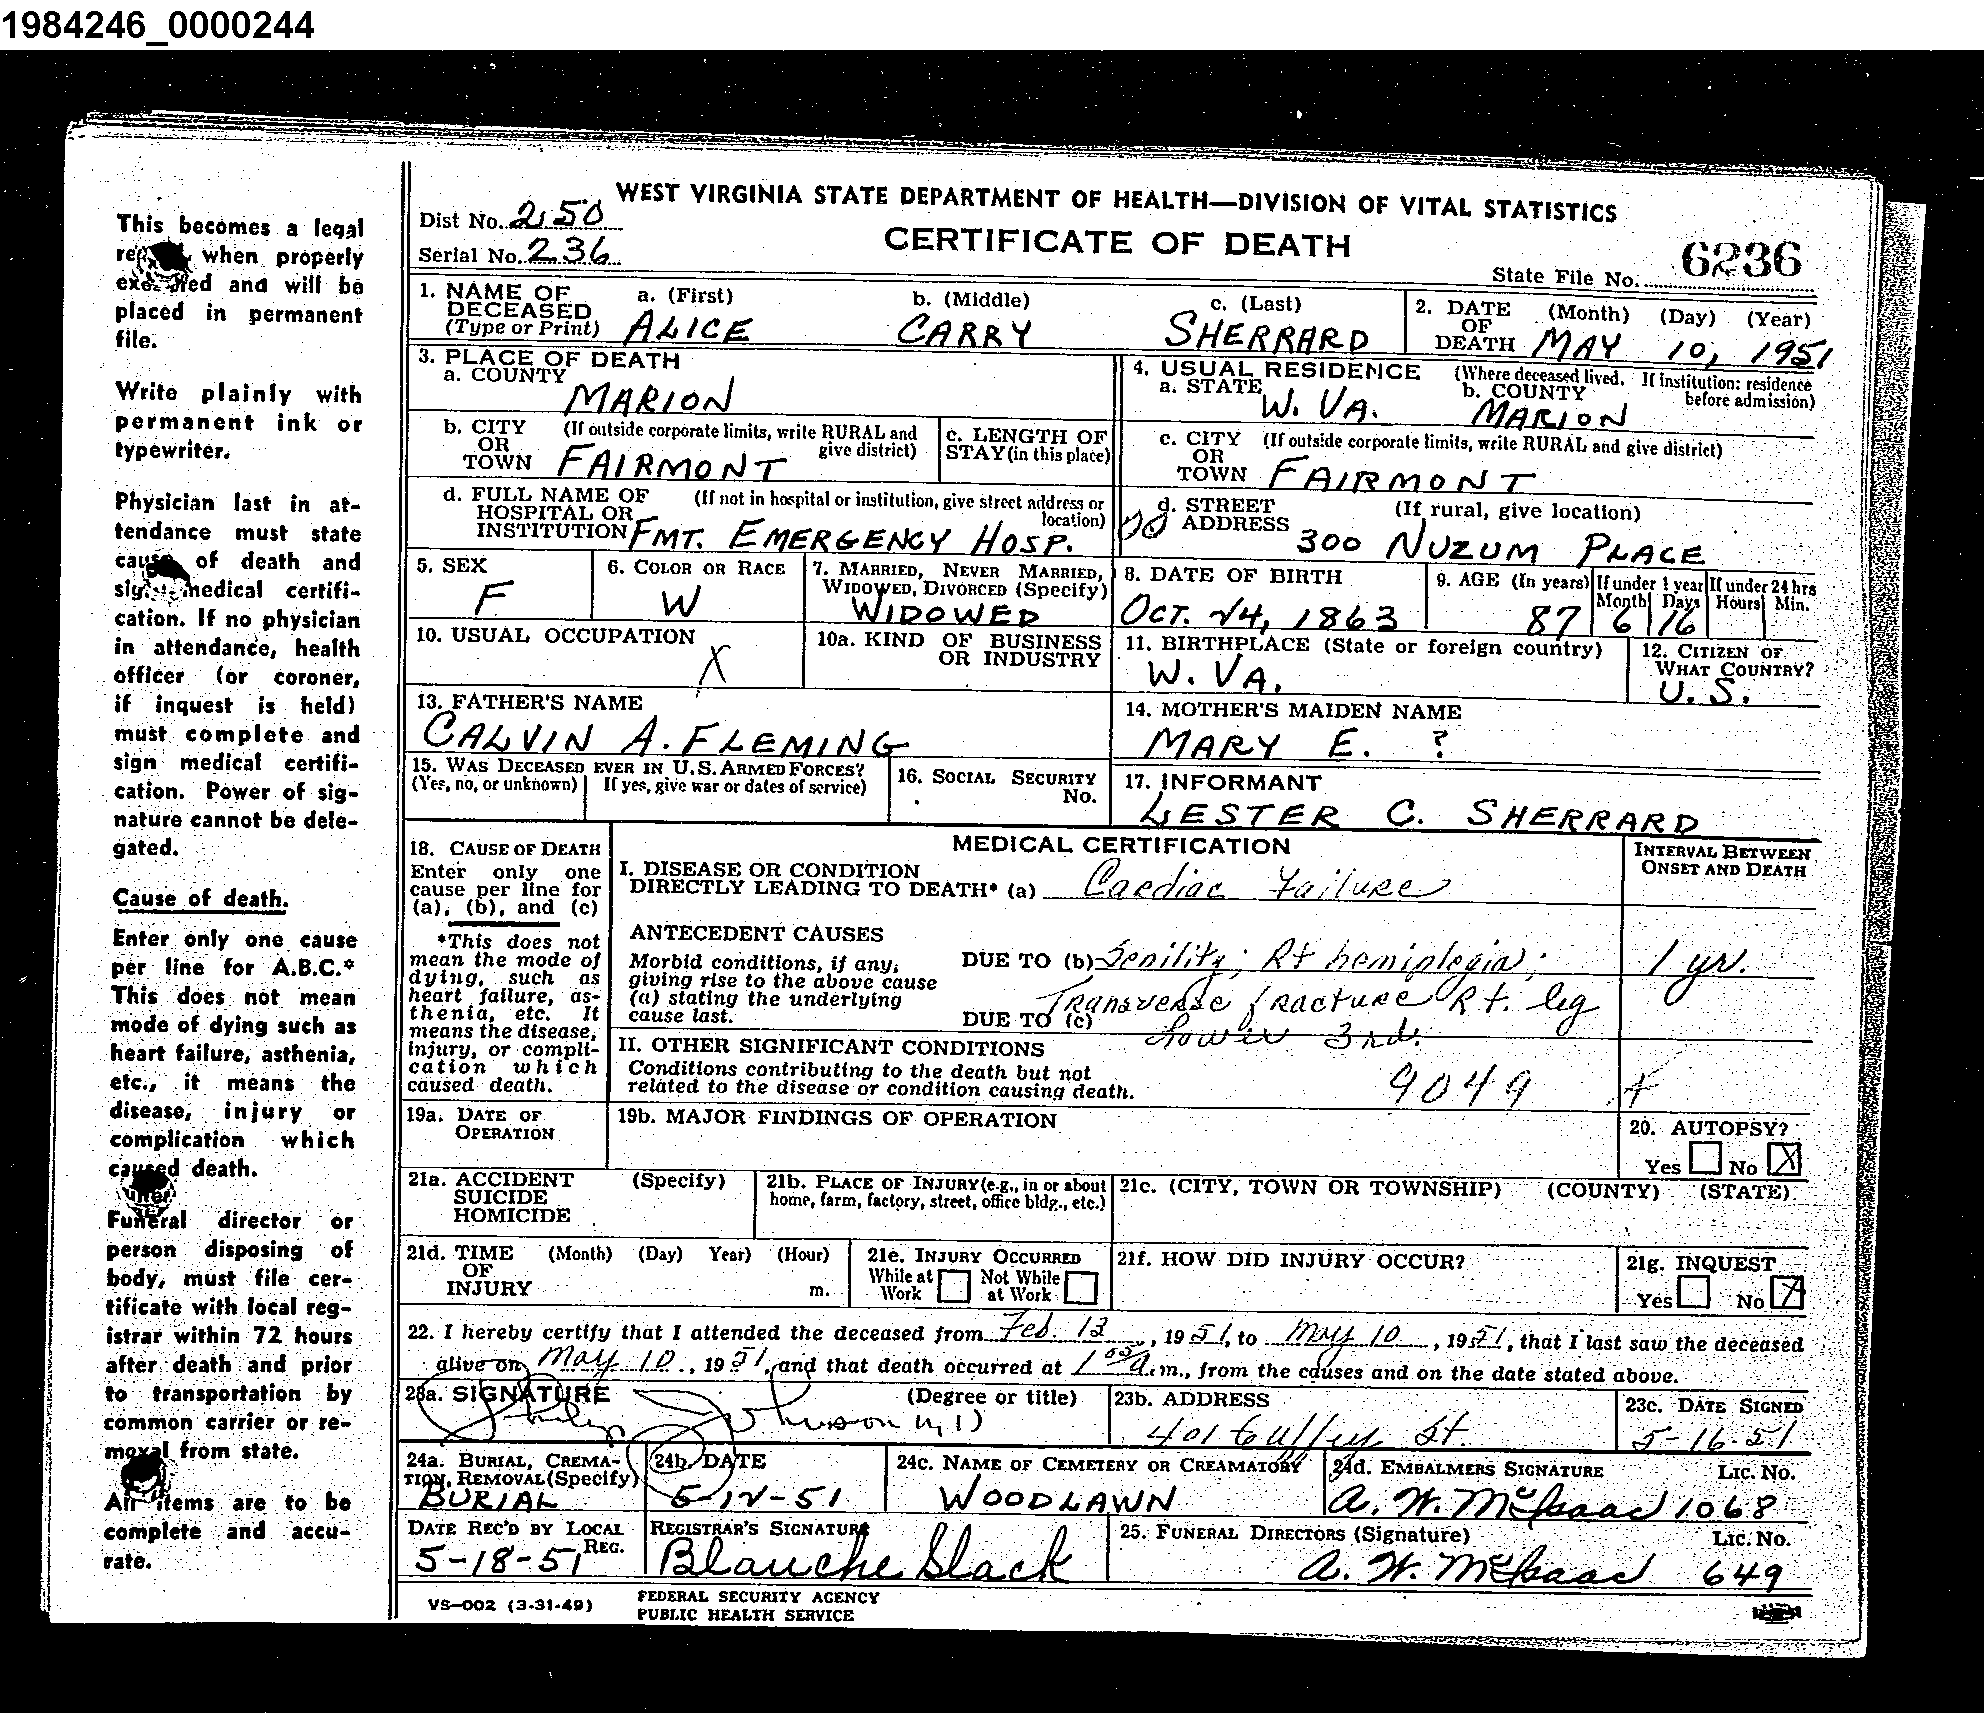 1984246_0000244
This becomes a legal
when properly
and will be
placed in permanent
file.
Write plainly with
permanent ink or
typewriter.
Physician last in at-
tendance must state
of death and
medical certifi-
cation. If no physician
in attendance, health
officer (or coroner,
if inquest is held)
must complete and
sign medical certifi-
cation. Power of sig-
nature cannot be dele-
gated.
Cause of death.
Enter only one cause
per line for A.B.C.*
This does not mean
mode of dying such as
heart failure, asthenia,
etc., it means the
disease, injury or
complication which
caused death.
Funeral director or
person disposing of
body, must file cer-
tificate with local reg-
istrar within 72 hours
after death and prior
to transportation by
common carrier or re-
moval from state.
All items are to be
complete and accu-
rate.
WEST VIRGINIA STATE DEPARTMENT OF HEALTH—DIVISION OF VITAL STATISTICS
Dist No. 250
CERTIFICATE OF DEATH
Serial No. 236
State File No. 6236
1. NAME OF DECEASED (Type or Print) a. (First) b. (Middle) c. (Last)
ALICE CARRY SHERRARD
2. DATE OF DEATH (Month) (Day) (Year)
MAY 10, 1951
3. PLACE OF DEATH
a. COUNTY
MARION
4. USUAL RESIDENCE (Where deceased lived. If institution: residence before admission)
a. STATE W. VA. b. COUNTY MARION
b. CITY OR TOWN (If outside corporate limits, write RURAL and give district)
FAIRMONT
c. LENGTH OF STAY (in this place)
c. CITY OR TOWN (If outside corporate limits, write RURAL and give district)
FAIRMONT
d. FULL NAME OF HOSPITAL OR INSTITUTION (If not in hospital or institution, give street address or location)
FMT. EMERGENCY HOSP.
d. STREET ADDRESS (If rural, give location)
300 NUZUM PLACE
5. SEX
F
6. COLOR OR RACE
W
7. MARRIED, NEVER MARRIED, WIDOWED, DIVORCED (Specify)
WIDOWED
8. DATE OF BIRTH
OCT. 24, 1863
9. AGE (In years) If under 1 year If under 24 hrs
Month Days Hours Min.
87 6 16
10. USUAL OCCUPATION
X
10a. KIND OF BUSINESS OR INDUSTRY
11. BIRTHPLACE (State or foreign country)
W. VA.
12. CITIZEN OF WHAT COUNTRY?
U.S.
13. FATHER'S NAME
CALVIN A. FLEMING
14. MOTHER'S MAIDEN NAME
MARY E. ?
15. WAS DECEASED EVER IN U.S. ARMED FORCES?
(Yes, no, or unknown) If yes, give war or dates of service)
16. SOCIAL SECURITY No.
17. INFORMANT
LESTER C. SHERRARD
18. CAUSE OF DEATH
Enter only one
cause per line for
(a), (b), and (c)
*This does not
mean the mode of
dying, such as
heart failure, as-
thenia, etc. It
means the disease,
injury, or compli-
cation which
caused death.
MEDICAL CERTIFICATION
INTERVAL BETWEEN ONSET AND DEATH
I. DISEASE OR CONDITION
DIRECTLY LEADING TO DEATH* (a) Cardiac Failure
ANTECEDENT CAUSES
Morbid conditions, if any,
giving rise to the above cause
(a) stating the underlying
cause last.
DUE TO (b) Senility; Rt hemiplegia; 1 yr.
Transverse fracture Rt. leg
DUE TO (c)
Lower 3rd.
II. OTHER SIGNIFICANT CONDITIONS
Conditions contributing to the death but not
related to the disease or condition causing death.
9049
19a. DATE OF OPERATION
19b. MAJOR FINDINGS OF OPERATION
20. AUTOPSY?
Yes No X
21a. ACCIDENT SUICIDE HOMICIDE (Specify)
21b. PLACE OF INJURY (e.g., in or about home, farm, factory, street, office bldg., etc.)
21c. (CITY, TOWN OR TOWNSHIP) (COUNTY) (STATE)
21d. TIME OF INJURY (Month) (Day) Year) (Hour) m.
21e. INJURY OCCURRED
While at Work Not While at Work
21f. HOW DID INJURY OCCUR?
21g. INQUEST
Yes No X
22. I hereby certify that I attended the deceased from Feb. 13, 1951, to May 10, 1951, that I last saw the deceased
alive on May 10, 1951, and that death occurred at 1 05 a.m., from the causes and on the date stated above.
23a. SIGNATURE (Degree or title)
Johnson M.D
23b. ADDRESS
401 Guffey St.
23c. DATE SIGNED
5-16-51
24a. BURIAL, CREMATION, REMOVAL (Specify)
BURIAL
24b. DATE
5-12-51
24c. NAME OF CEMETERY OR CREAMATORY
WOODLAWN
24d. EMBALMERS SIGNATURE LIC. No.
A. W. McIsaac 1068
DATE REC'D BY LOCAL REG.
5-18-51
REGISTRAR'S SIGNATURE
Blanche Slack
25. FUNERAL DIRECTORS (Signature) LIC. No.
A. W. McIsaac 649
VS-002 (3-31-49)
FEDERAL SECURITY AGENCY
PUBLIC HEALTH SERVICE